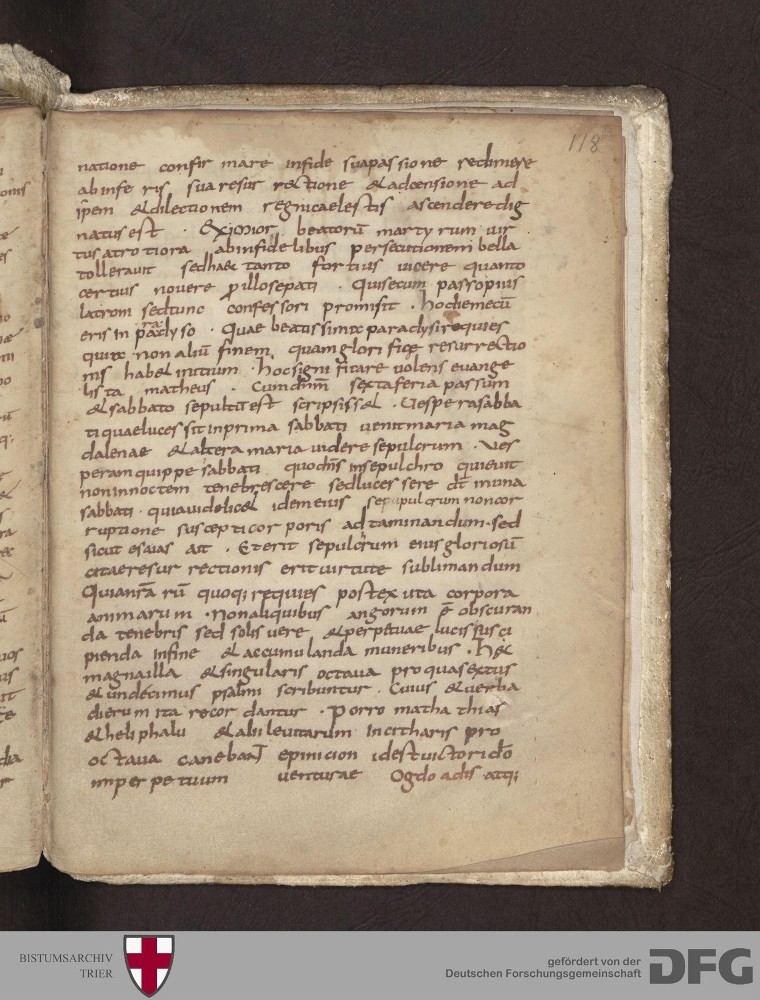 118
natione confir mare infide suapassione redimere
abinfe ris sua resur rectione &adcensione ad
&dilectionem regnicaelestis ascendere dig
natus est . Eximior beatorū martyrum vir
tus atrotiora abinfidelibus persecutionem bella
tolleravit sedhaec tanto fortius vicere quanto
certius novere illosepati . Quisecum passopius
latroni sedtunc confessori promisit . hodiemecū
eris in paradyso . Quae beatissimae paradysi requies
quiae non aliū finem quamglorificae resurrectio
nis hab& initium . hocsignificare volens evange
lista matheus . Cum sextaferia passum
&sabbato sepultū est scripsiss& . Vespere sabba
ti quaelucessit inprima sabbati venit maria mag
dalenae &altera maria videre sepulcrum . Ves
peram quippe sabbati quodn̄s insepulchro quievit
noninnoctem tenebrescere sedlucessere inuna
sabbati . quia videlic& idem eius sepulcrum noncor
ruptione suscepti corporis ad taminandum . sed
sicut esaias ait . Et erit sepulcrum eius gloriosū
citae resurrectionis erit virtute sublimandum
Quiansarū quoq; requies postex vita corpora
animarum . Nonaliquibus angorum ē obscuran
da tenebris sed solis vere &perpetuae lucis susci
pienda Infine &accumulanda muneribus . H&c
magna illa &singularis octava pro qua sextus
&undecimus psalmi scribuntur . Cuius &verba
dierum ita recordantur . Porro mathathias
&heliphalu &alii levitarum In citharis pro
octava canebant epinicion id est victoriā dō
inperpetuum venturae Ogdoadis atq;
BISTUMSARCHIV
TRIER
gefördert von der
Deutschen Forschungsgemeinschaft
DFG